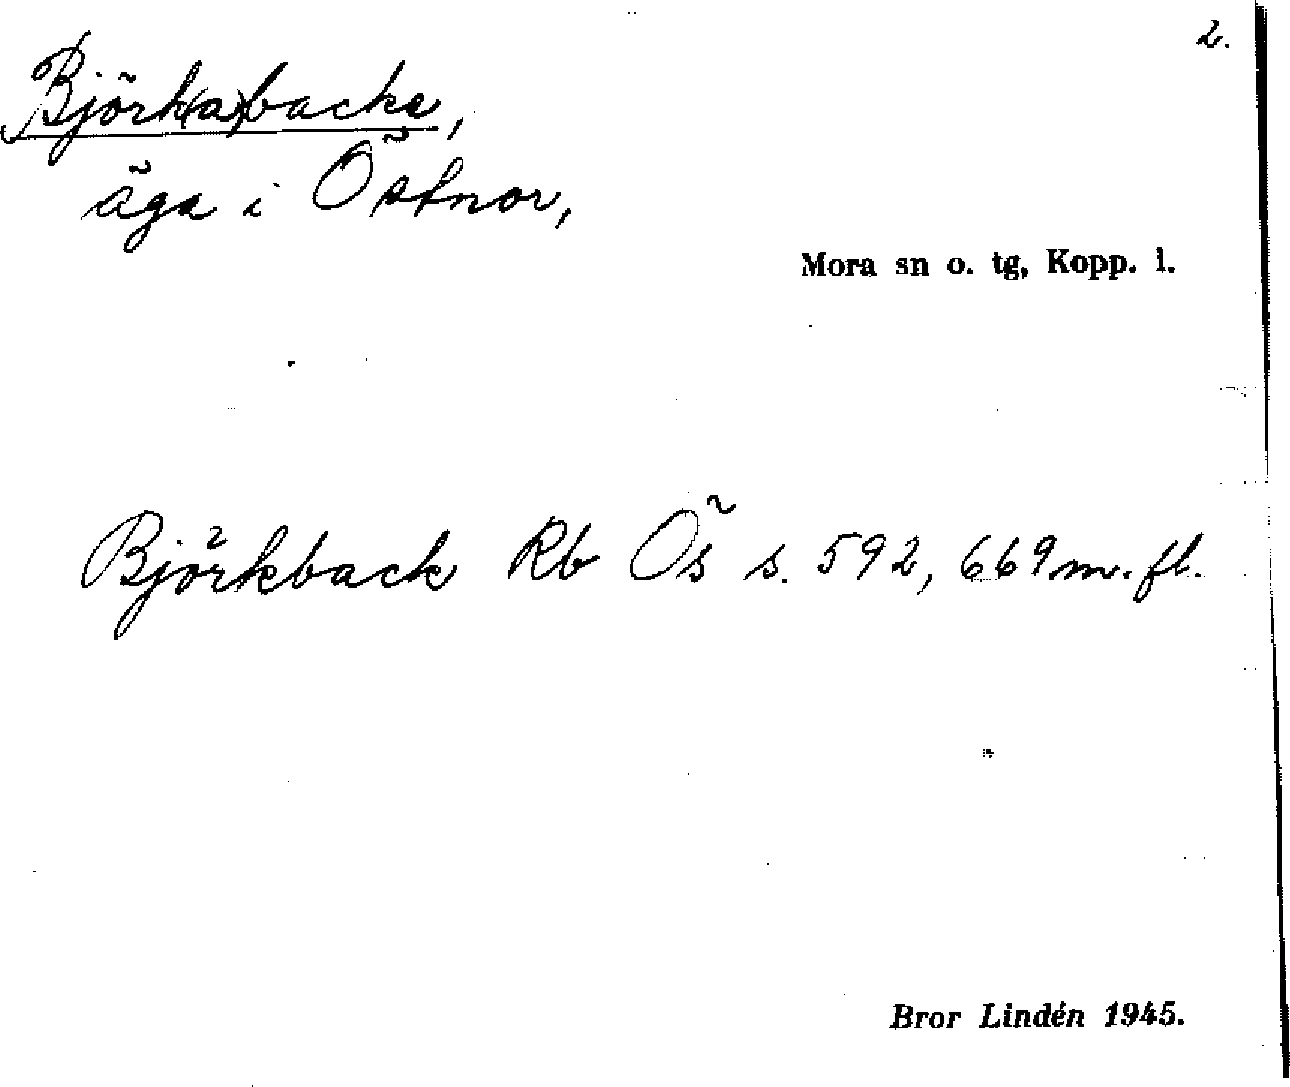 2.
Björk(a)backe,
äga i Östnor,
Mora sn o. tg, Kopp. l.
Björkback Rb Ös s. 592, 669 m. fl.
Bror Lindén 1945.